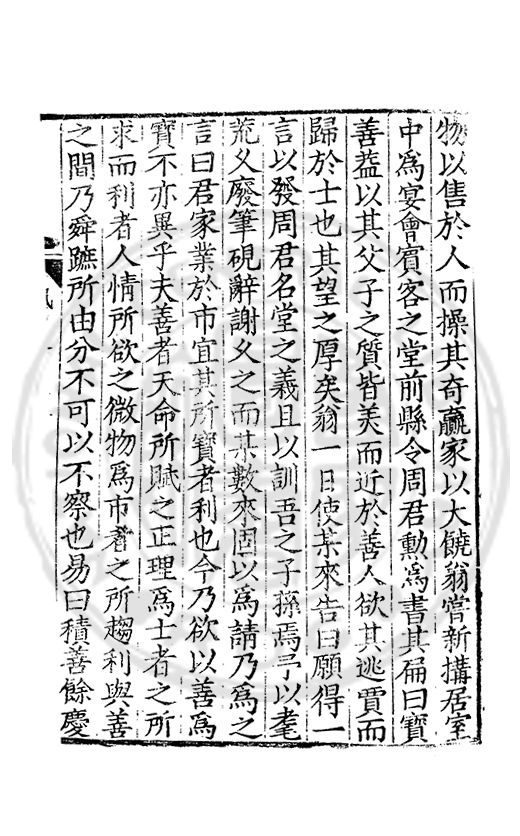 物以售於人而操其奇贏家以大饒翁嘗新搆居室
中爲宴會賓客之堂前縣令周君勲爲書其扁曰寶
善葢以其父子之質皆美而近於善人欲其逃賈而
歸於士也其望之厚矣翁一日使某來告曰願得一
言以發周君名堂之義且以訓吾之子孫焉予以耄
荒乆廢筆硯辭謝乆之而某數來固以爲請乃爲之
言曰君家業於市宜其所寶者利也今乃欲以善爲
寶不亦異乎夫善者天命所賦之正理爲士者之所
求而利者人情所欲之微物爲市者之所趨利與善
之間乃舜蹠所由分不可以不察也易曰積善餘慶